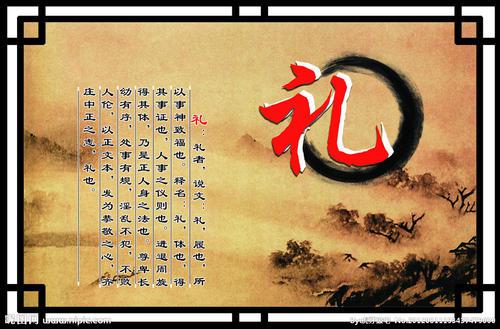 礼
礼：礼者，说文：礼，履也，所
以事神致福也 释名：礼，体也，得
其事证也，人事之仪则也。进退周旋
得其体，乃是正人身之法也。尊卑长
幼有序，处事有规，淫乱不犯，不败
人伦，以正文本，发为恭敬之心，齐
庄中正之态，礼也。
昵图网 www.nipic.com